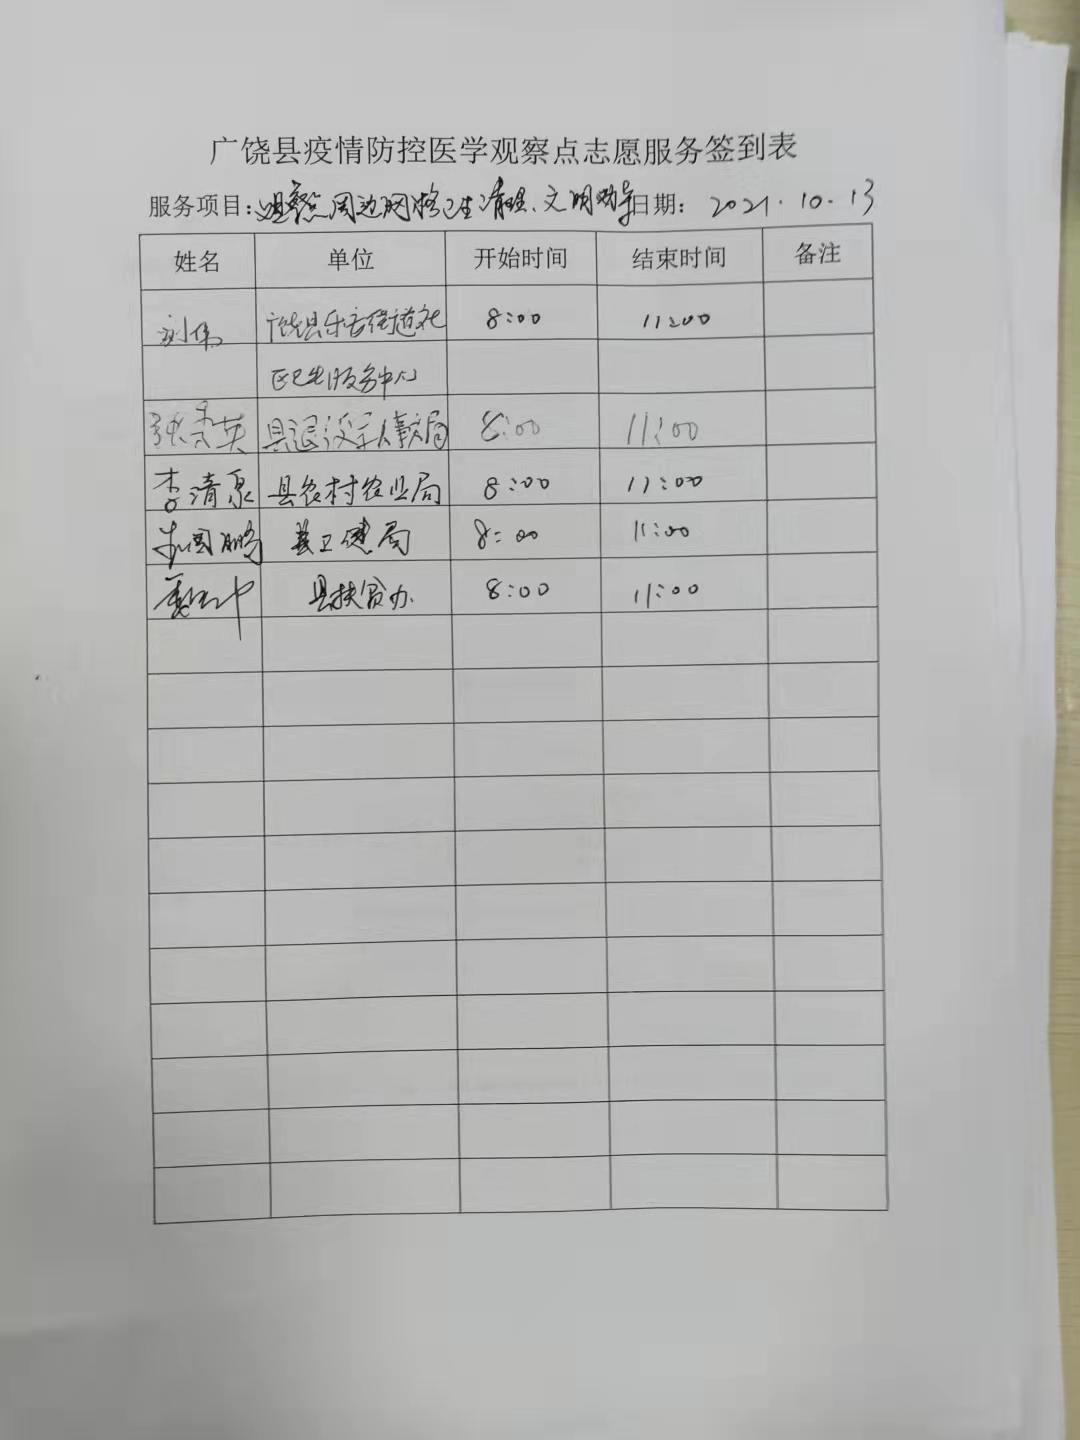 广饶县疫情防控医学观察点志愿服务签到表
服务项目: 周边网格卫生清理、文明劝导 日期: 2021.10.13
姓名 单位 开始时间 结束时间 备注
刘伟 广饶县乐安街道社 8:00 11:00
区卫生服务中心
张秀英 县退役军人事务局 8:00 11:00
李清泉 县农村农业局 8:00 11:00
朱国鹏 县卫健局 8:00 11:00
县扶贫办 8:00 11:00